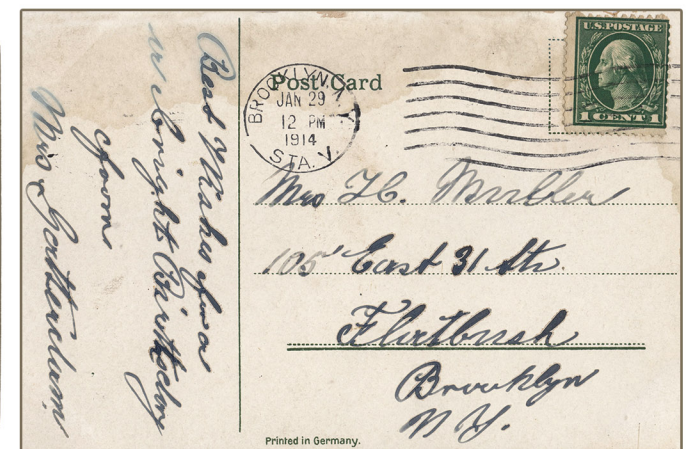 Best Wishes for a
bright Birthday
from
Mrs
Post Card
BROOKLYN, N.Y.
JAN 29
12 PM
1914
STA. V.
U.S. POSTAGE
1 CENT 1
Mrs H. Muller
105 East 31 Str.
Flatbush
Brooklyn
N.Y.
Printed in Germany.